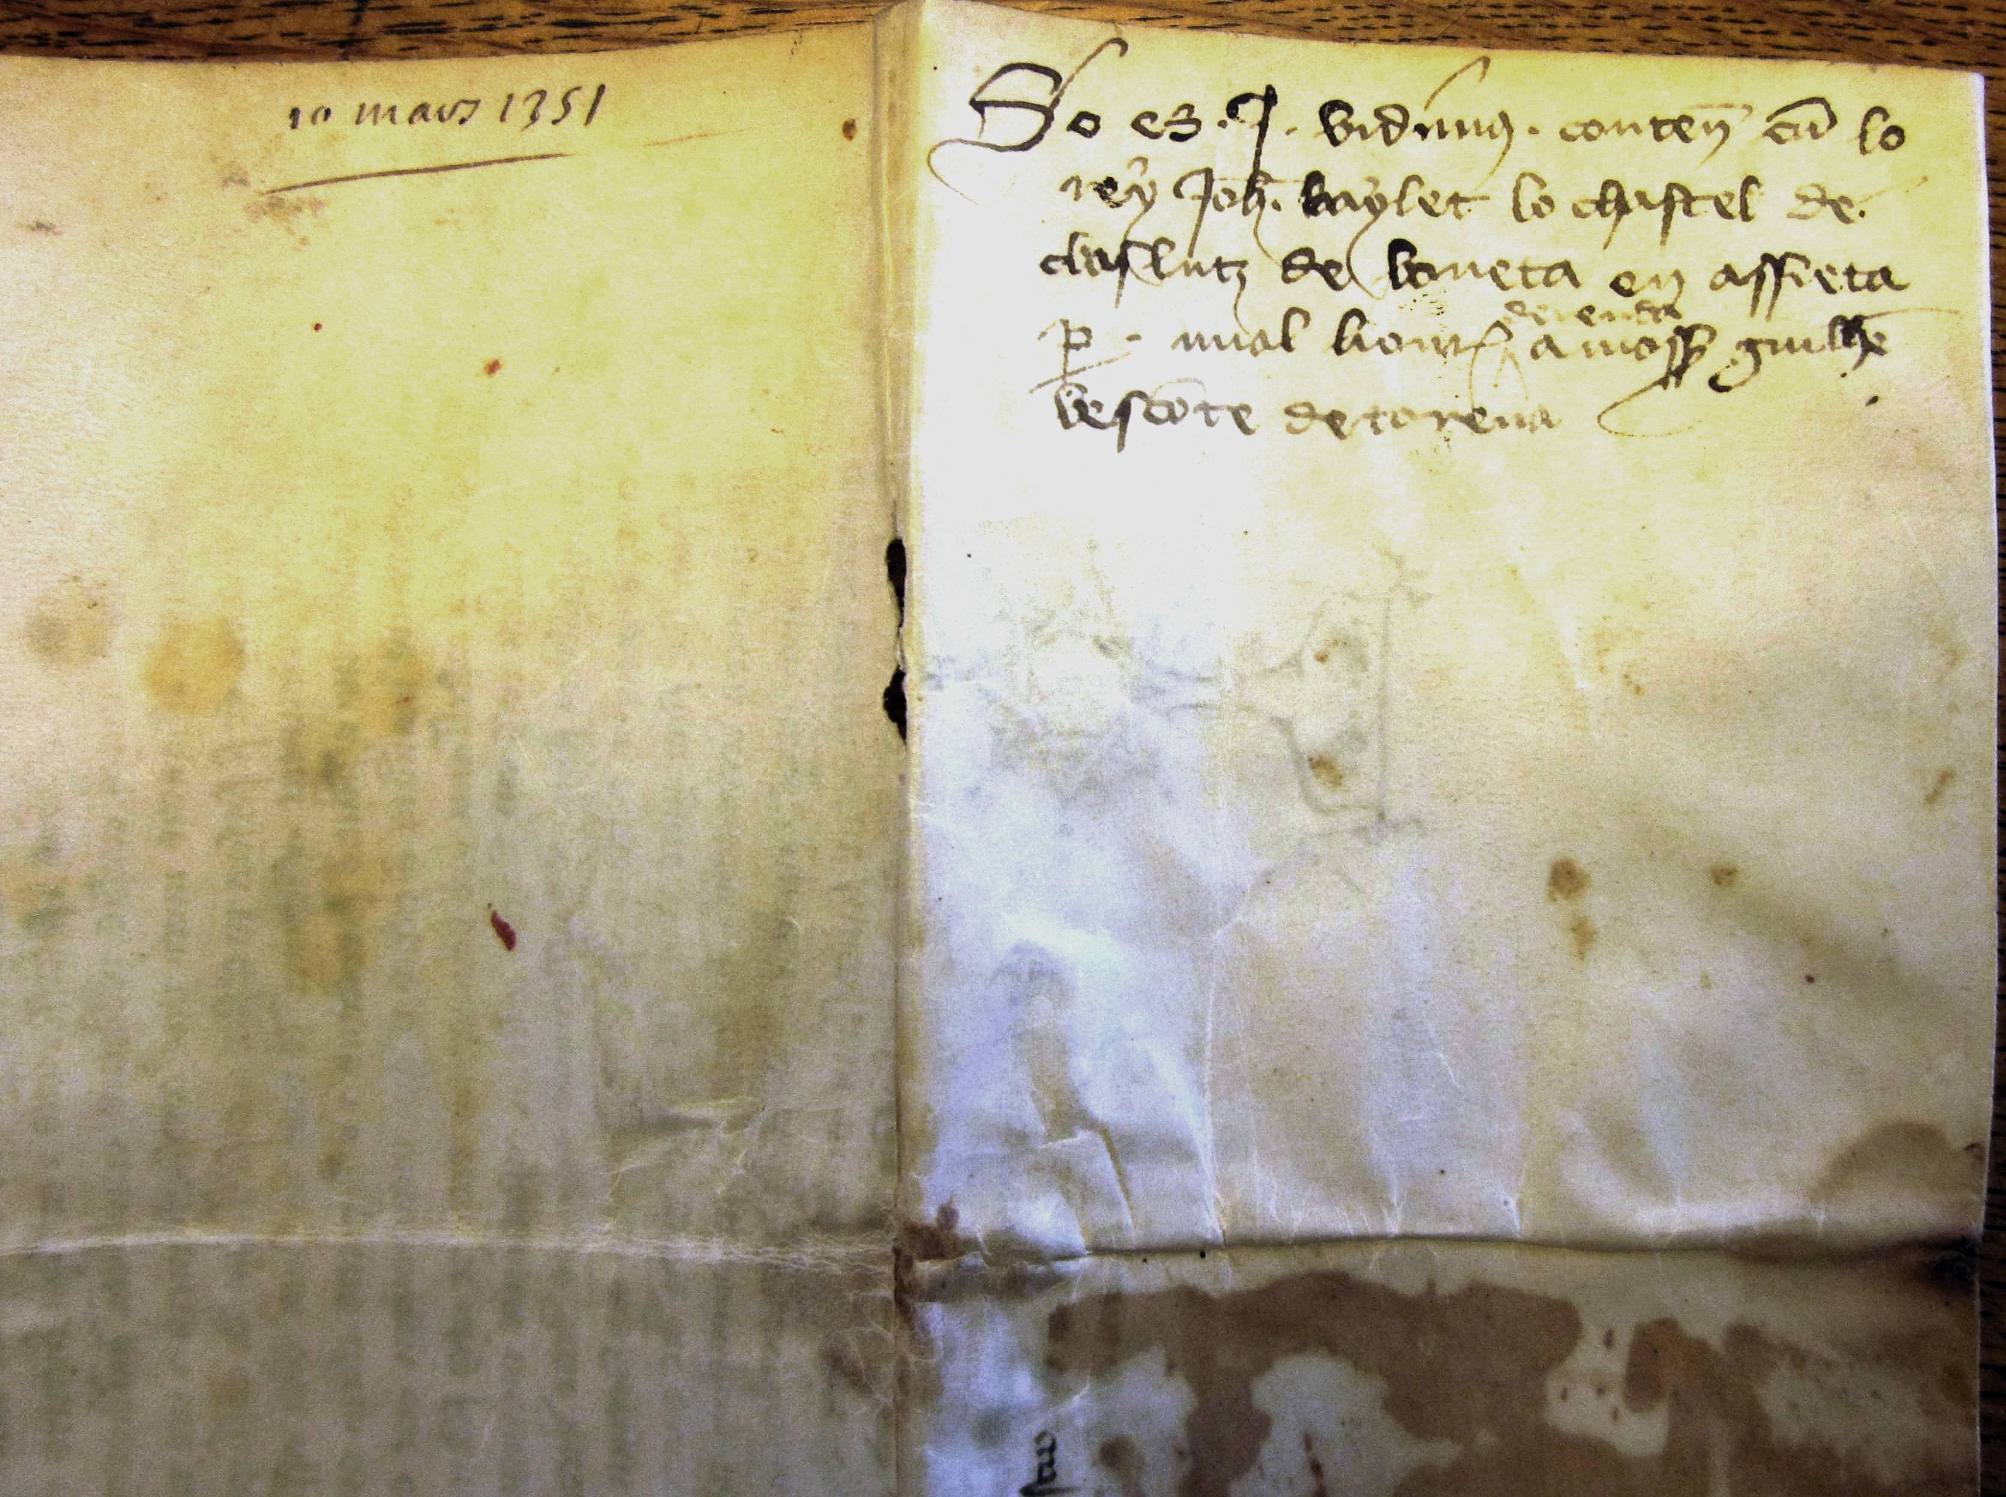 10 mars 1351
So es . J . vidimus . conten̄ cū lo
rey Joh̄. baylet lo chastel de
chaslutz de boneta en assieta
de renda
p̱ . mial lioures a moss guilhē
vescōte de torena